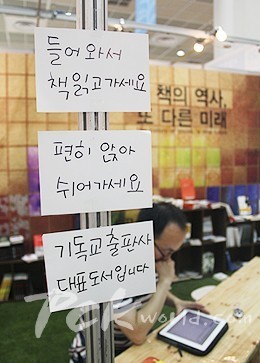 들어 와서
책읽고가세요
편히 앉아
쉬어가세요
기독교출판사
대표도서입니다
책의 역사,
또 다른 미래
PCKworld.com